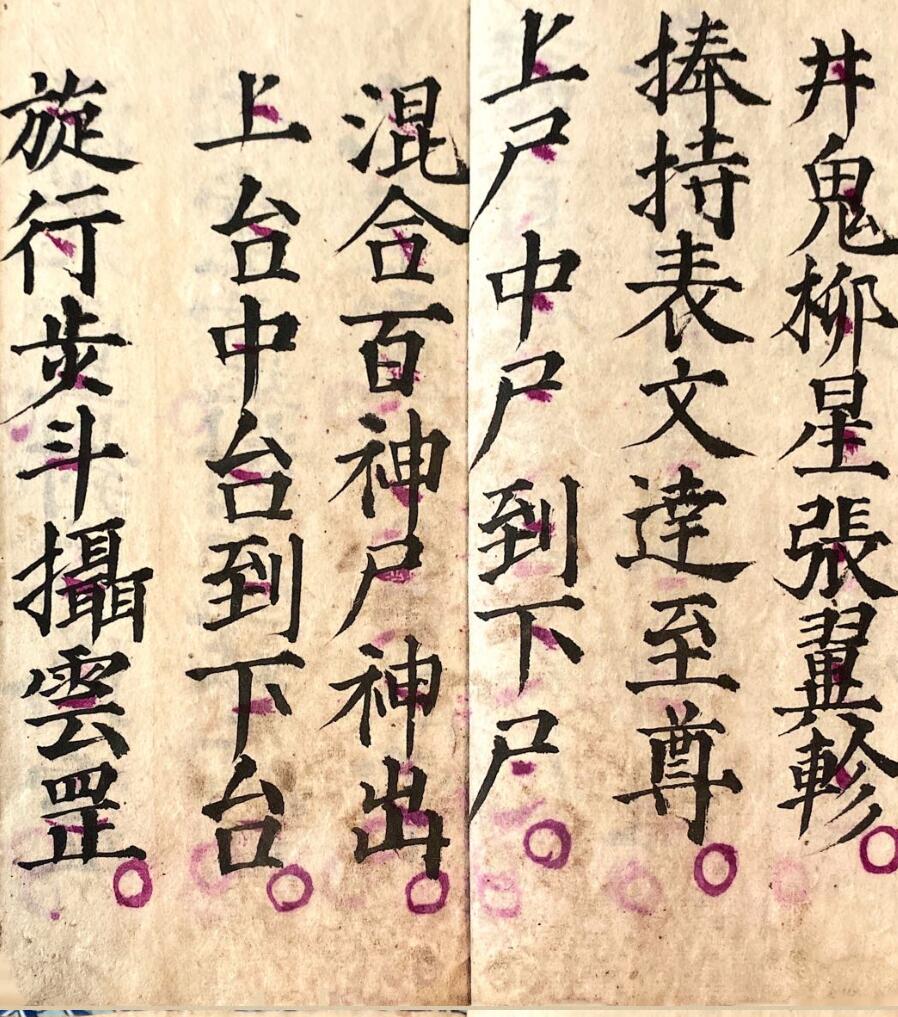 井鬼柳星張翼軫
捧持表文達至尊
上尸中尸到下尸
混合百神尸神出
上台中台到下台
旋行步斗攝雲罡